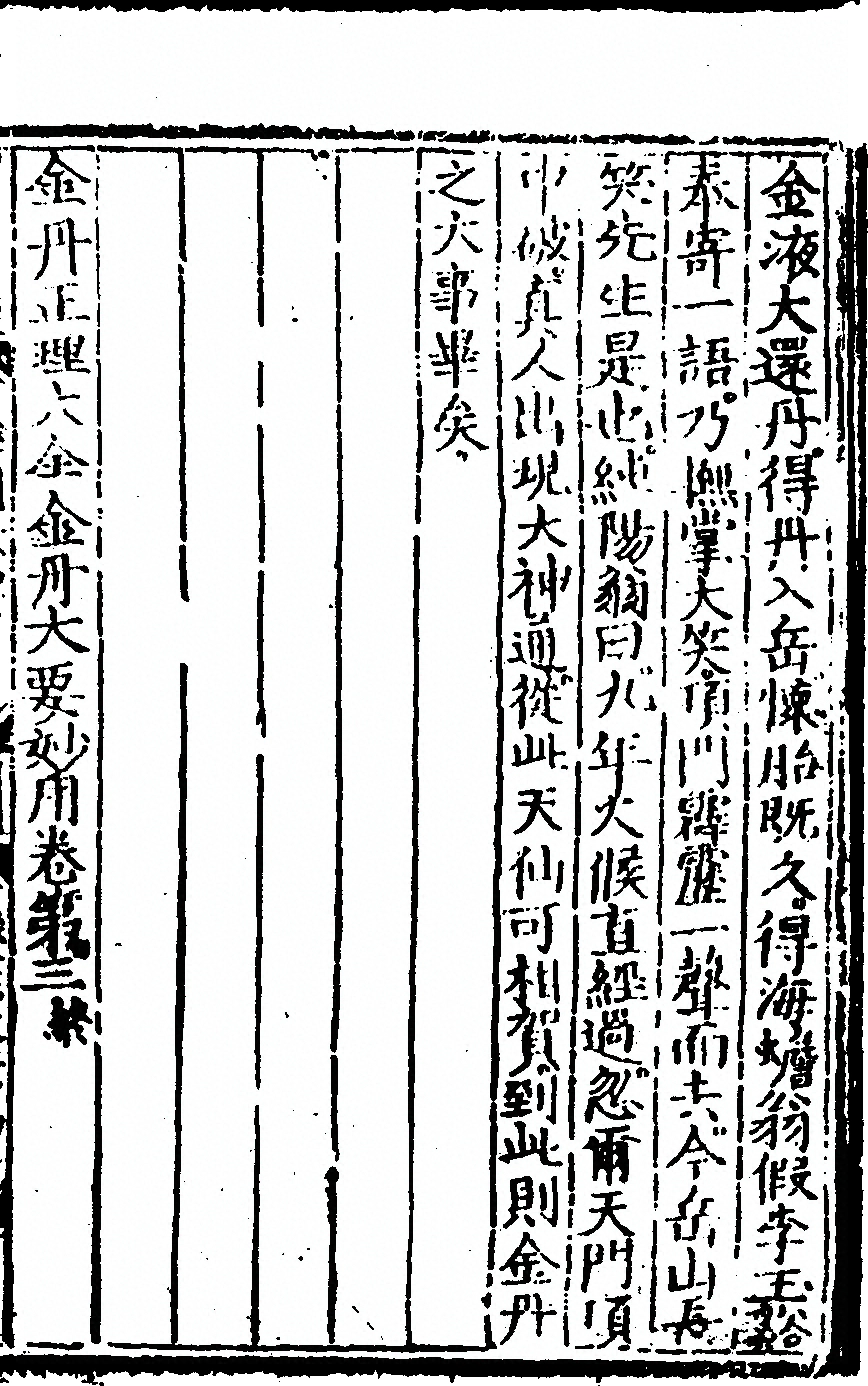 金液大還丹得丹入岳煉胎既久得海蟾翁假李玉谿
奏寄一語乃撫掌大笑頂門霹靂一聲而去今岳山長
笑先生是也純陽翁曰九年火候直經過忽爾天門頂
中破真人出現大神通從此天仙可相賀到此則金丹
之大事畢矣
金丹正理大全金丹大要妙用卷第三終